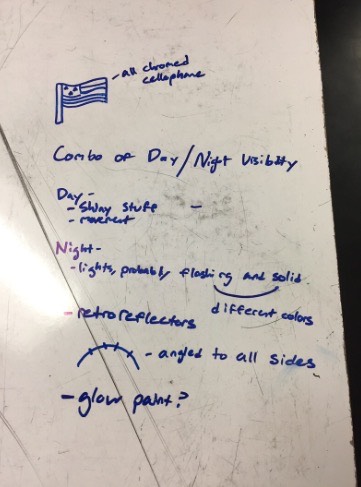 - all chromed
cellophane
Combo of Day/Night Visibility
Day -
- Shiny stuff -
- movement
Night -
- lights, probably flashing and solid
different colors
- retroreflectors
- angled to all sides
- glow paint?